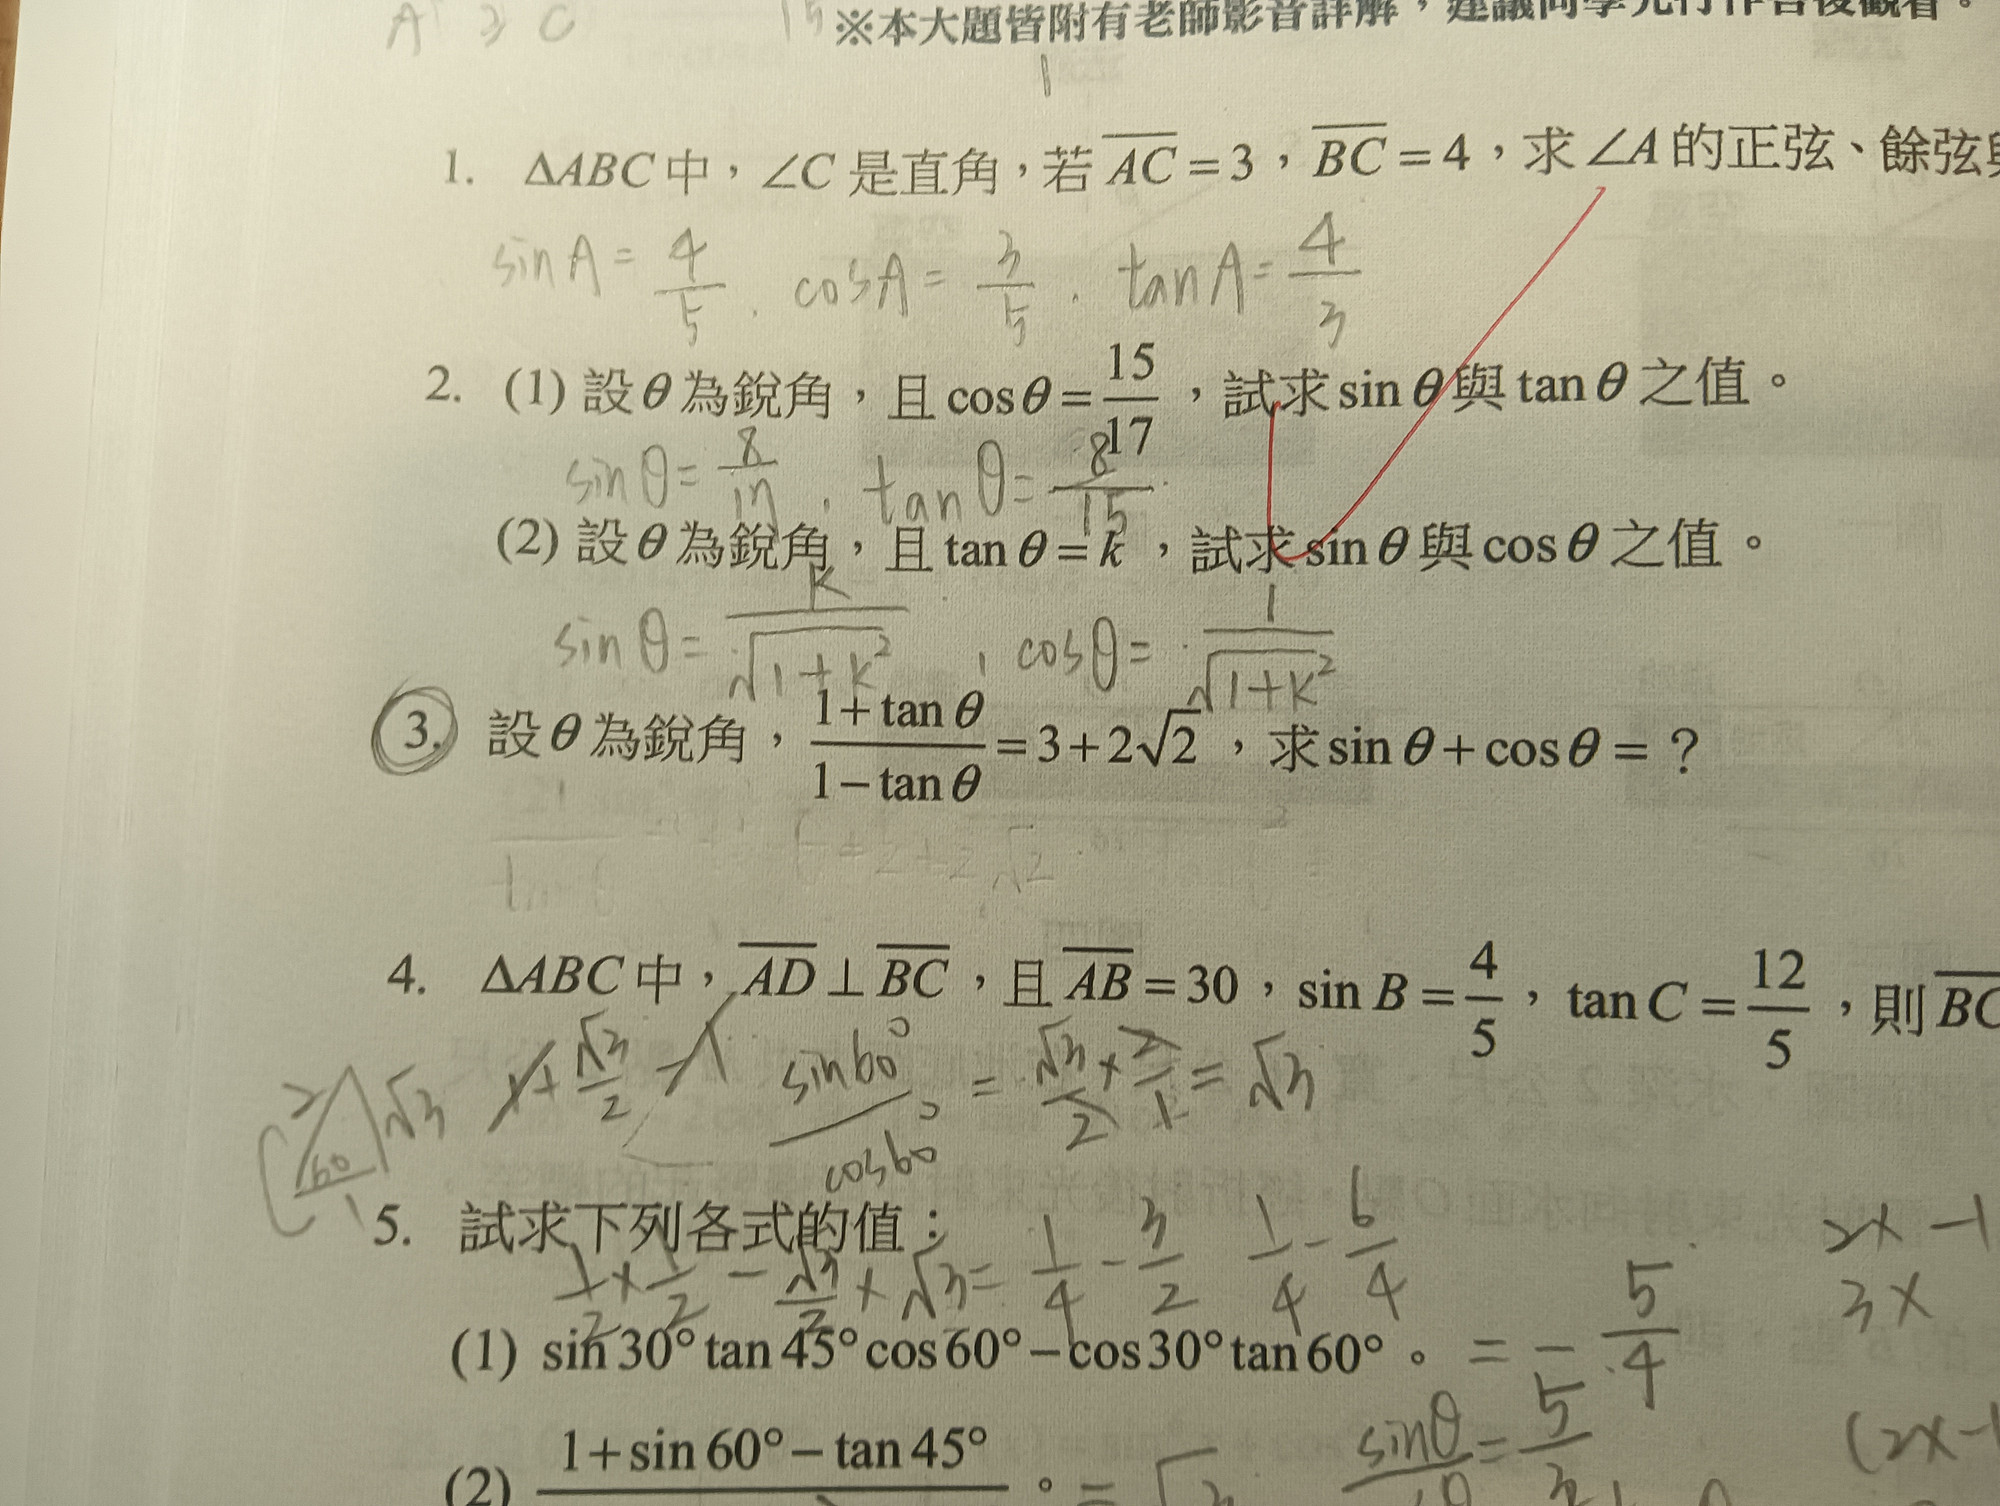 A
※本大題皆附有老師影音詳解，建議同學先行作答後觀看。
1. ΔABC中，∠C 是直角，若 AC=3，BC=4，求∠A的正弦、餘弦與
sinA= 4/5 . cosA= 3/5 . tanA= 4/3
2. (1) 設θ為銳角，且cosθ=15/17，試求sinθ與tanθ之值。
sinθ= 8/17 , tanθ= 8/15
(2) 設θ為銳角，且tanθ=k，試求sinθ與cosθ之值。
sinθ= k/√(1+k²) , cosθ= 1/√(1+k²)
3. 設θ為銳角，(1+tanθ)/(1−tanθ)=3+2√2，求sinθ+cosθ=？
4. ΔABC中，AD⊥BC，且AB=30，sin B=4/5，tan C=12/5，則BC
2 √3 60 1
1+ √3/2 −1 sin60°/cos60° = √3/2 × 2/1 = √3
5. 試求下列各式的值：
1/2 × 1/2 − √3/2 × √3 = 1/4 − 3/2 1/4 − 6/4
2x −1
3x
(1) sin30°tan45°cos60°−cos30°tan60°。 = − 5/4
sinθ = 5/3
(2x−1
(2) 1+sin60°−tan45° 。 = √3